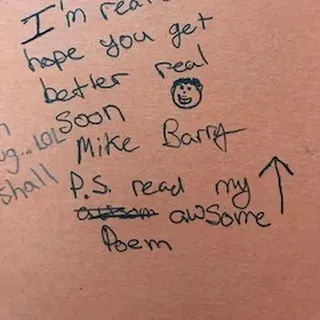 I'm real
hope you get
better real
soon
Mike Barry
P.S. read my
awsome
Poem
g... LOL
shall